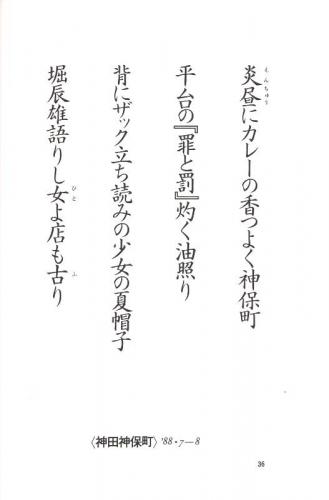 炎昼にカレーの香つよく神保町
えんちゅう
平台の『罪と罰』灼く油照り
背にザック立ち読みの少女の夏帽子
堀辰雄語りし女よ店も古り
ひと
ふ
〈神田神保町〉'88・7―8
36